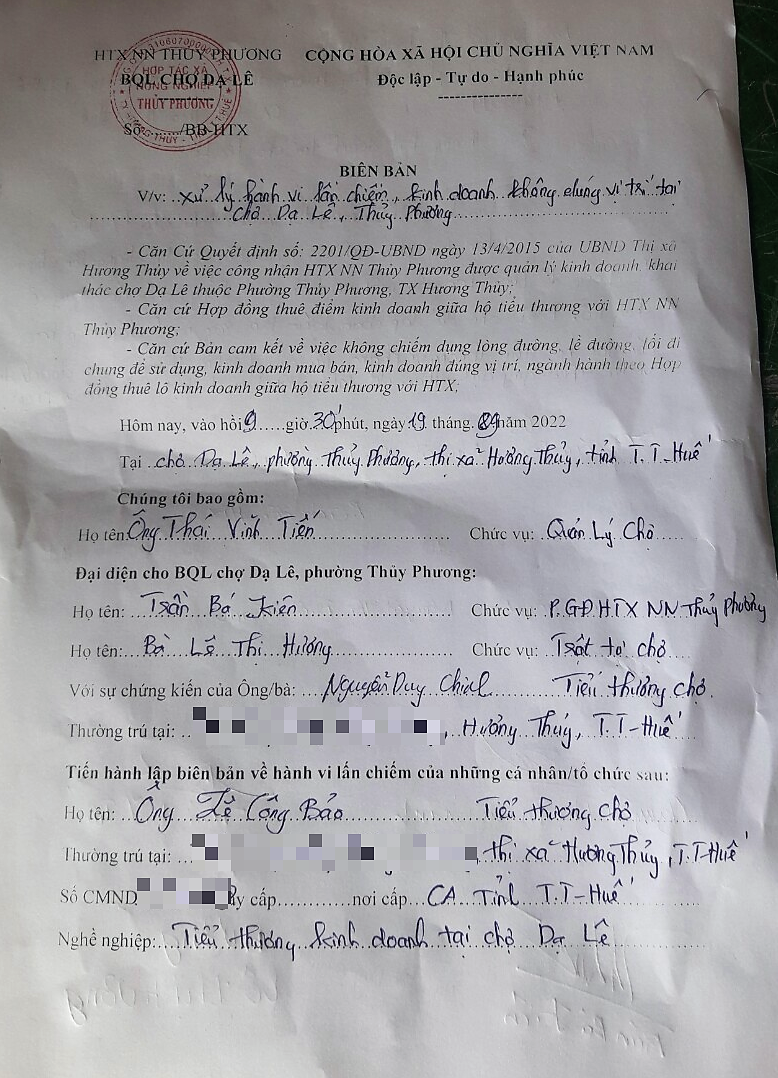 HTX NN THỦY PHƯƠNG
BQL CHỢ DẠ LÊ
CỘNG HÒA XÃ HỘI CHỦ NGHĨA VIỆT NAM
Độc lập - Tự do - Hạnh phúc
HỢP TÁC XÃ
NÔNG NGHIỆP
THỦY PHƯƠNG
Số....../BB-HTX
BIÊN BẢN
V/v: xử lý hành vi lấn chiếm, kinh doanh không đúng vị trí tại
chợ Dạ Lê, Thủy Phương
- Căn Cứ Quyết định số: 2201/QĐ-UBND ngày 13/4/2015 của UBND Thị xã
Hương Thủy về việc công nhận HTX NN Thủy Phương được quản lý kinh doanh, khai
thác chợ Dạ Lê thuộc Phường Thủy Phương, TX Hương Thủy;
- Căn cứ Hợp đồng thuê điểm kinh doanh giữa hộ tiểu thương với HTX NN
Thủy Phương;
- Căn cứ Bản cam kết về việc không chiếm dụng lòng đường, lề đường, lối đi
chung để sử dụng, kinh doanh mua bán, kinh doanh đúng vị trí, ngành hành theo Hợp
đồng thuê lô kinh doanh giữa hộ tiểu thương với HTX;
Hôm nay, vào hồi 9 giờ 30 phút, ngày 19 tháng 09 năm 2022
Tại chợ Dạ Lê, phường Thủy Phương, thị xã Hương Thủy, tỉnh T.T-Huế
Chúng tôi bao gồm:
Họ tên: Ông Thái Vinh Tiến Chức vụ: Quản Lý Chợ
Đại diện cho BQL chợ Dạ Lê, phường Thủy Phương:
Họ tên: Trần Bá Kiên Chức vụ: P.GĐ HTX NN Thủy Phương
Họ tên: Bà Lê Thị Hương Chức vụ: Trật tự chợ
Với sự chứng kiến của Ông/bà: Nguyễn Duy Tiểu thương chợ
Thường trú tại: , Hương Thủy, T.T-Huế
Tiến hành lập biên bản về hành vi lấn chiếm của những cá nhân/tổ chức sau:
Họ tên: Ông Lê Công Bảo Tiểu thương chợ
Thường trú tại: , thị xã Hương Thủy, T.T-Huế
Số CMND cấp nơi cấp CA Tỉnh T.T-Huế
Nghề nghiệp: Tiểu thương kinh doanh tại chợ Dạ Lê